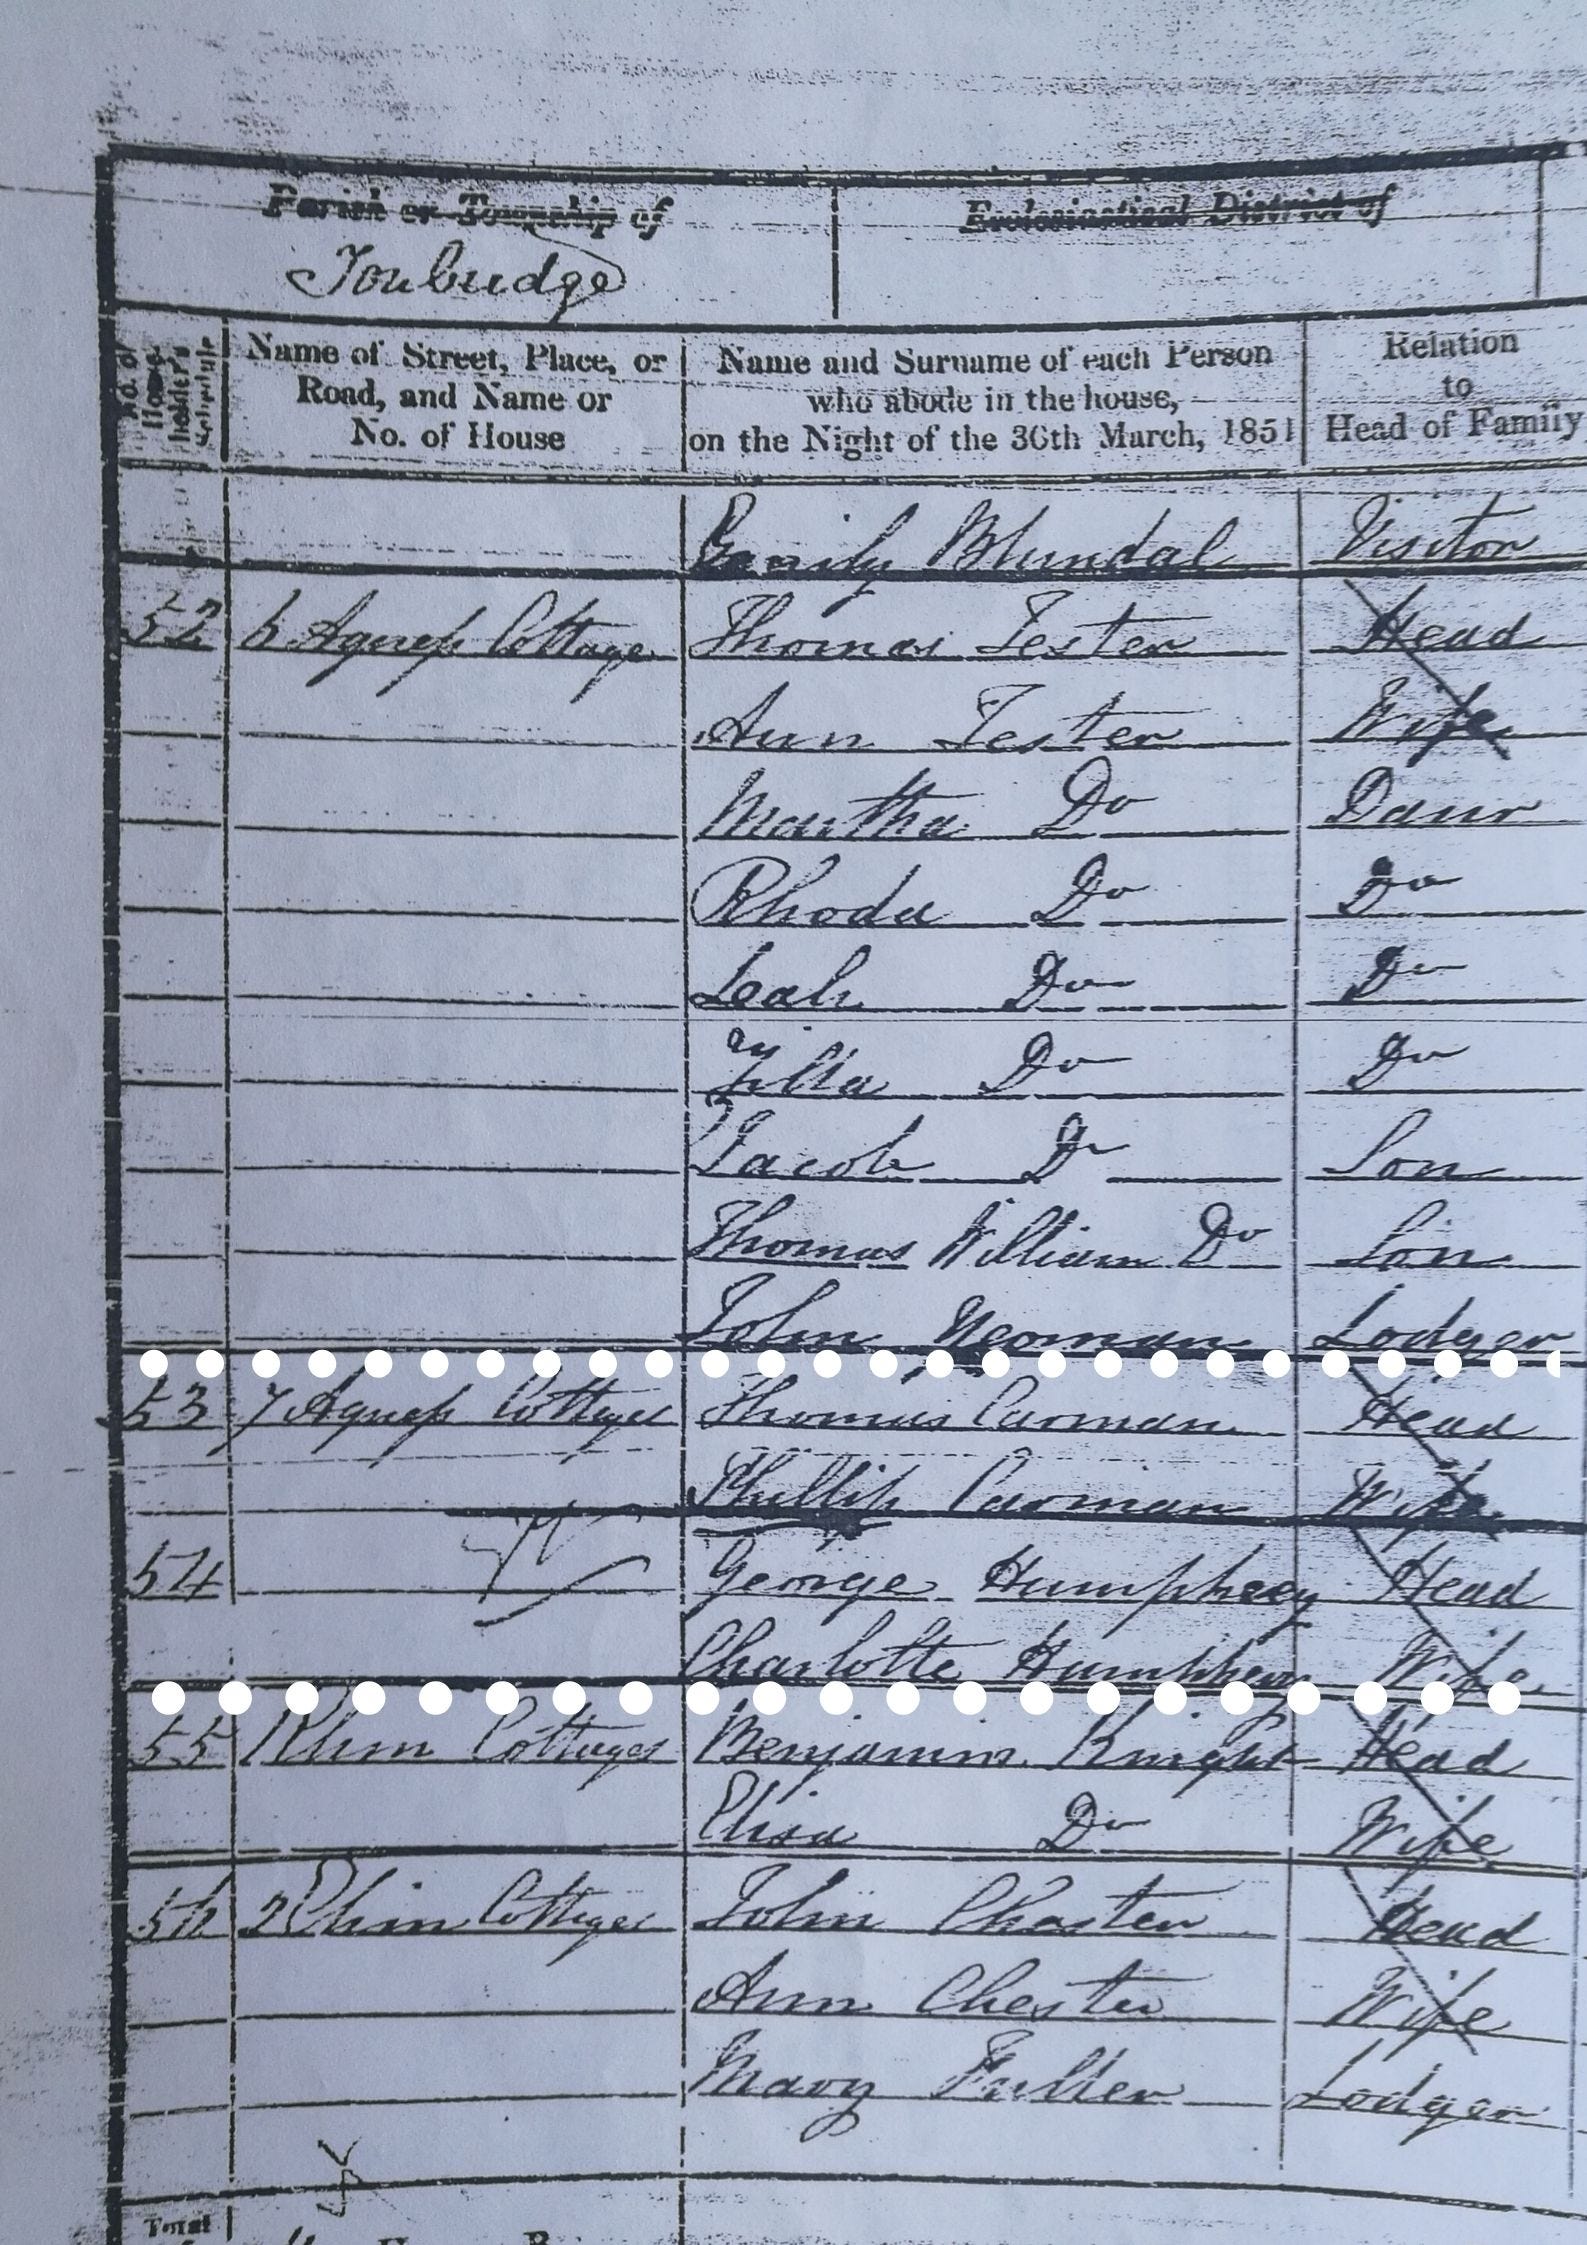 Parish or Township of
Ecclesiastical District of
Tonbridge
No. of House-holder's Schedule
Name of Street, Place, or Road, and Name or No. of House
Name and Surname of each Person who abode in the house, on the Night of the 30th March, 1851
Relation to Head of Family
Emily Blundal Visitor
52 6 Cottage Thomas Tester Head
Ann Tester Wife
Martha Do Daur
Rhoda Do Do
Leah Do Do
Zilla Do Do
Jacob Do Son
Thomas William Do Son
John Yeoman Lodger
53 7 Cottages Thomas Carman Head
Phillip Carman Wife
54 George Humphrey Head
Charlotte Humphrey Wife
55 Cottages Benjamin Knight Head
Elisa Do Wife
56 2 Cottages John Chester Head
Ann Chester Wife
Mary Fuller Lodger
Total